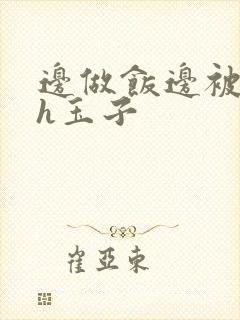 邊做飯邊被
h玉子
崔亞東